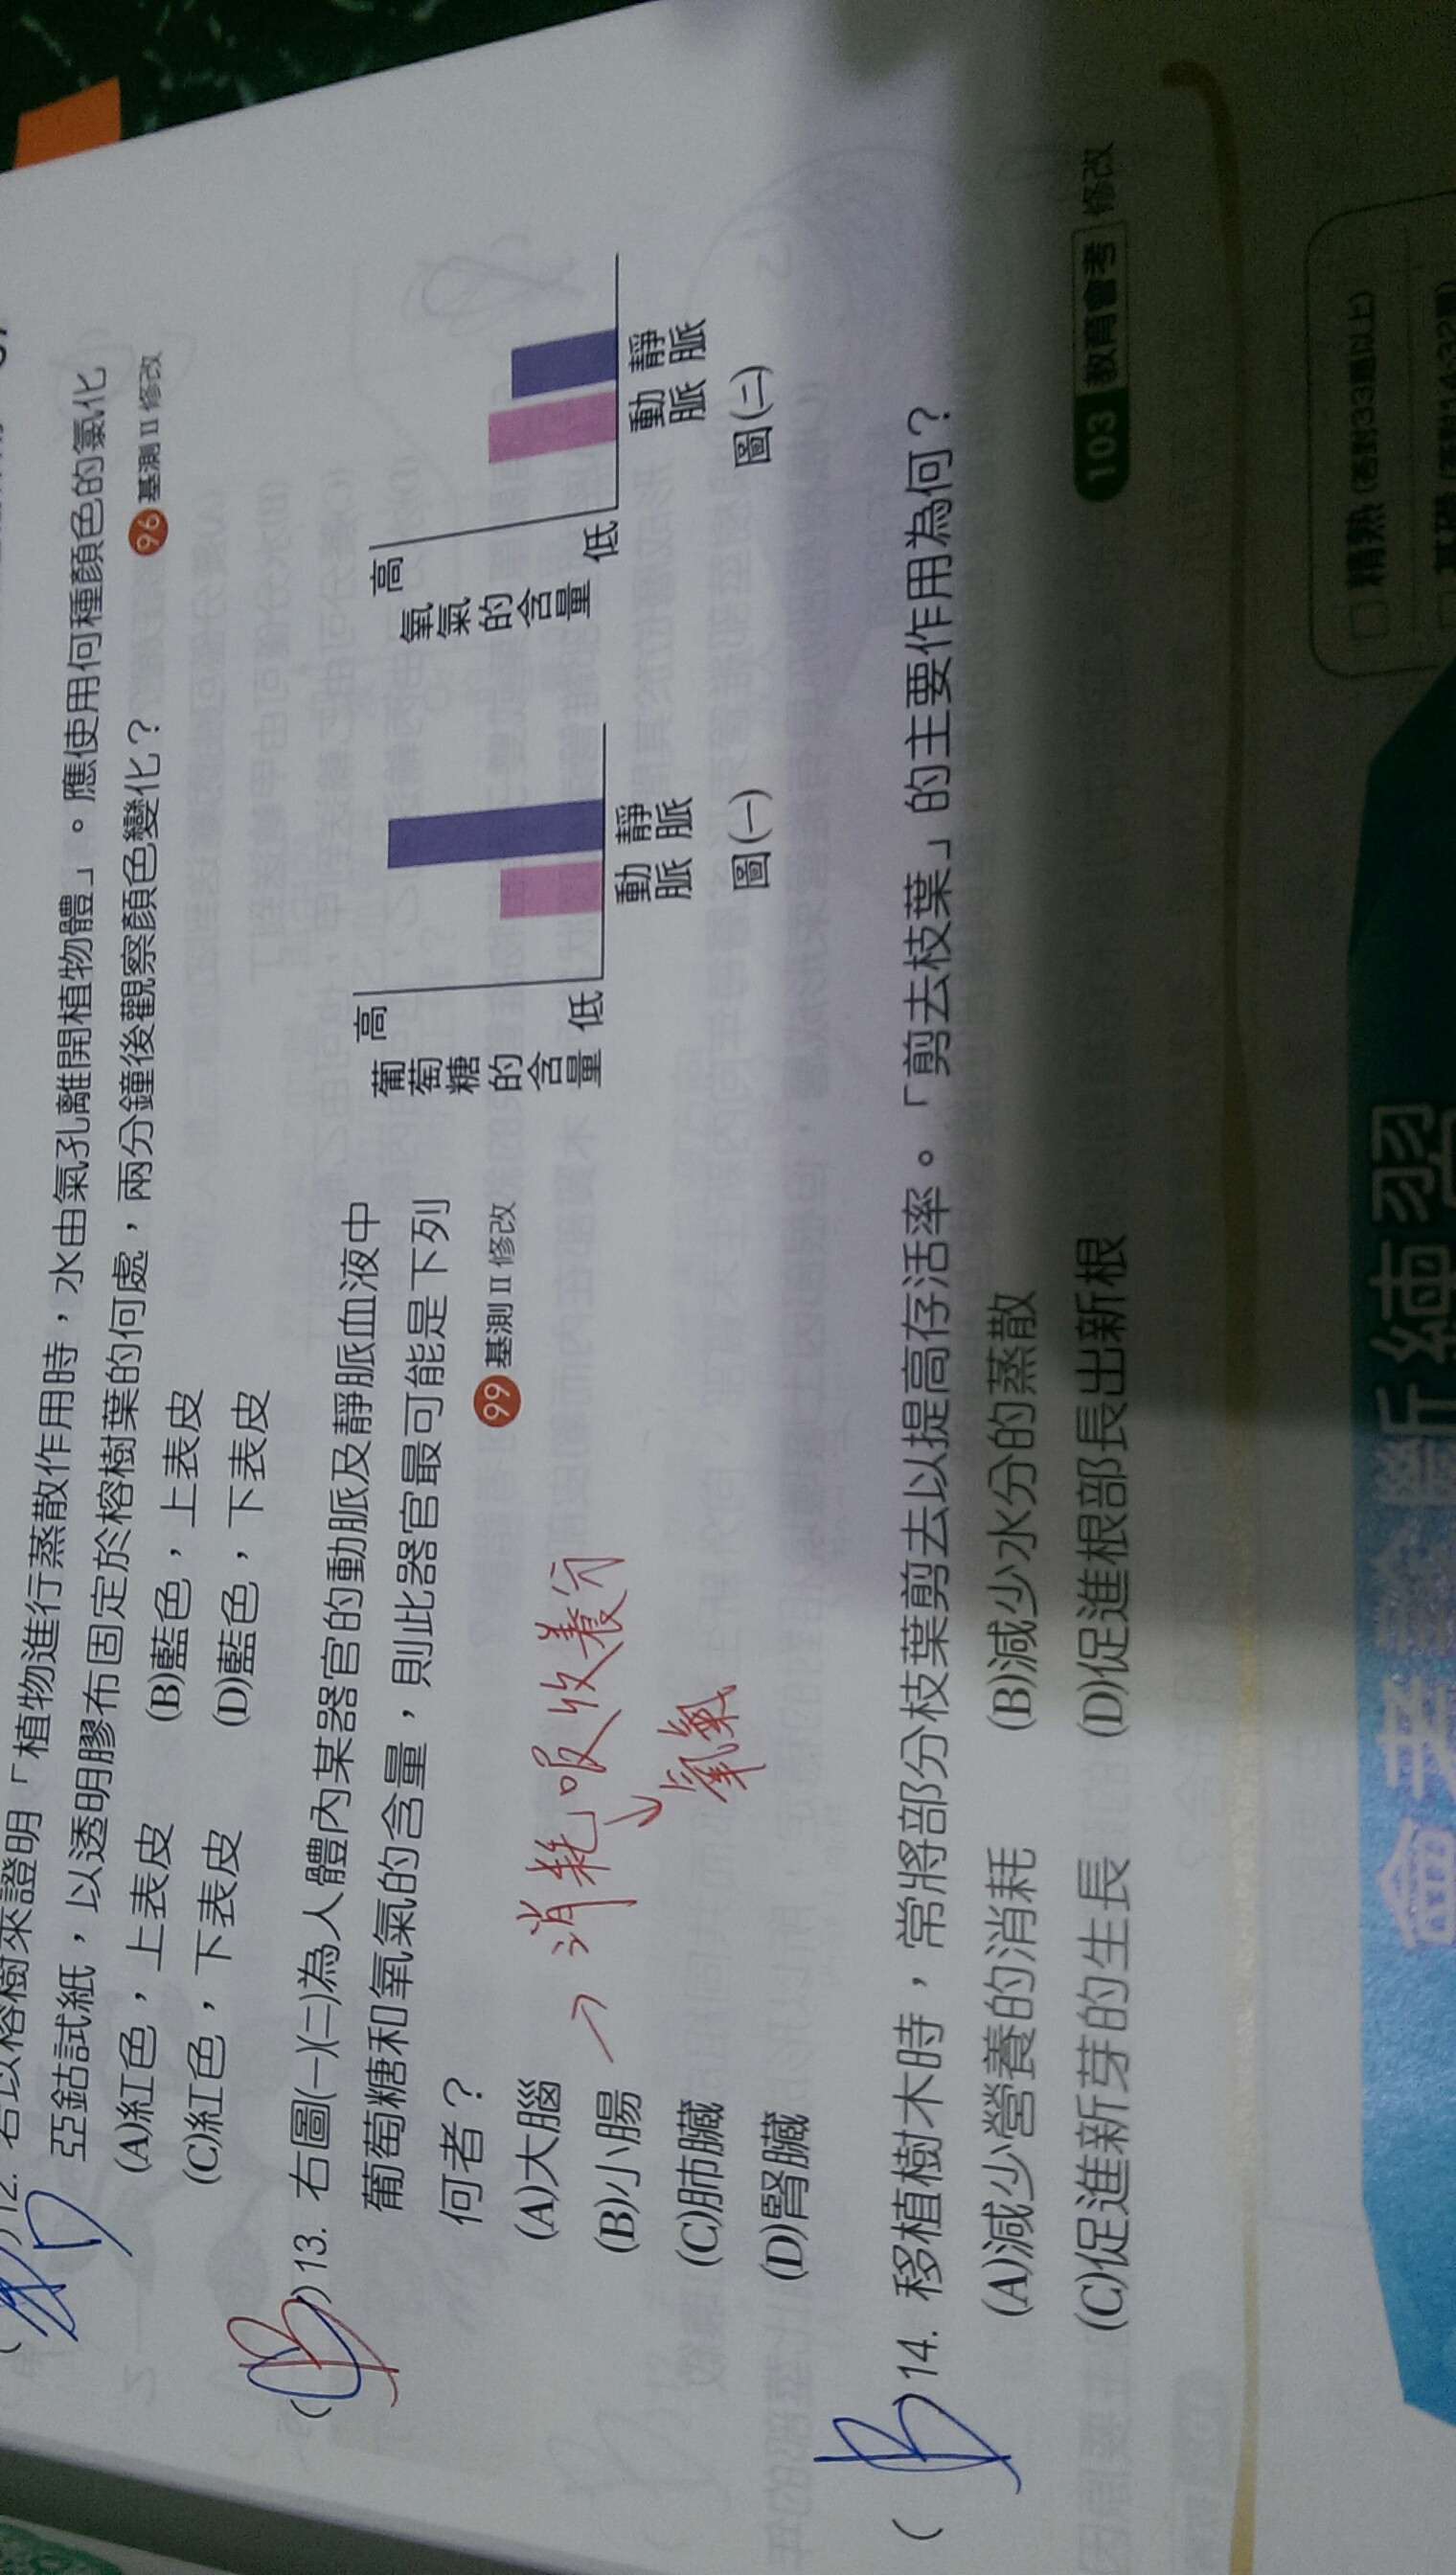 12. 若以榕樹來證明「植物進行蒸散作用時，水由氣孔離開植物體」。應使用何種顏色的氯化
亞鈷試紙，以透明膠布固定於榕樹葉的何處，兩分鐘後觀察顏色變化？
96 基測Ⅱ修改
(A)紅色，上表皮 (B)藍色，上表皮
(C)紅色，下表皮 (D)藍色，下表皮
(B) 13. 右圖(一)(二)為人體內某器官的動脈及靜脈血液中
葡萄糖和氧氣的含量，則此器官最可能是下列
何者？
99 基測Ⅱ修改
(A)大腦
(B)小腸
(C)肺臟
(D)腎臟
→ 消耗，吸收養分
氧氣
高
葡萄糖的含量
低
動脈 靜脈
圖(一)
高
氧氣的含量
低
動脈 靜脈
圖(二)
(B) 14. 移植樹木時，常將部分枝葉剪去以提高存活率。「剪去枝葉」的主要作用為何？
(A)減少營養的消耗 (B)減少水分的蒸散
(C)促進新芽的生長 (D)促進根部長出新根
103 教育會考 修改
□精熟 (答對33題以上)
會考診斷練習